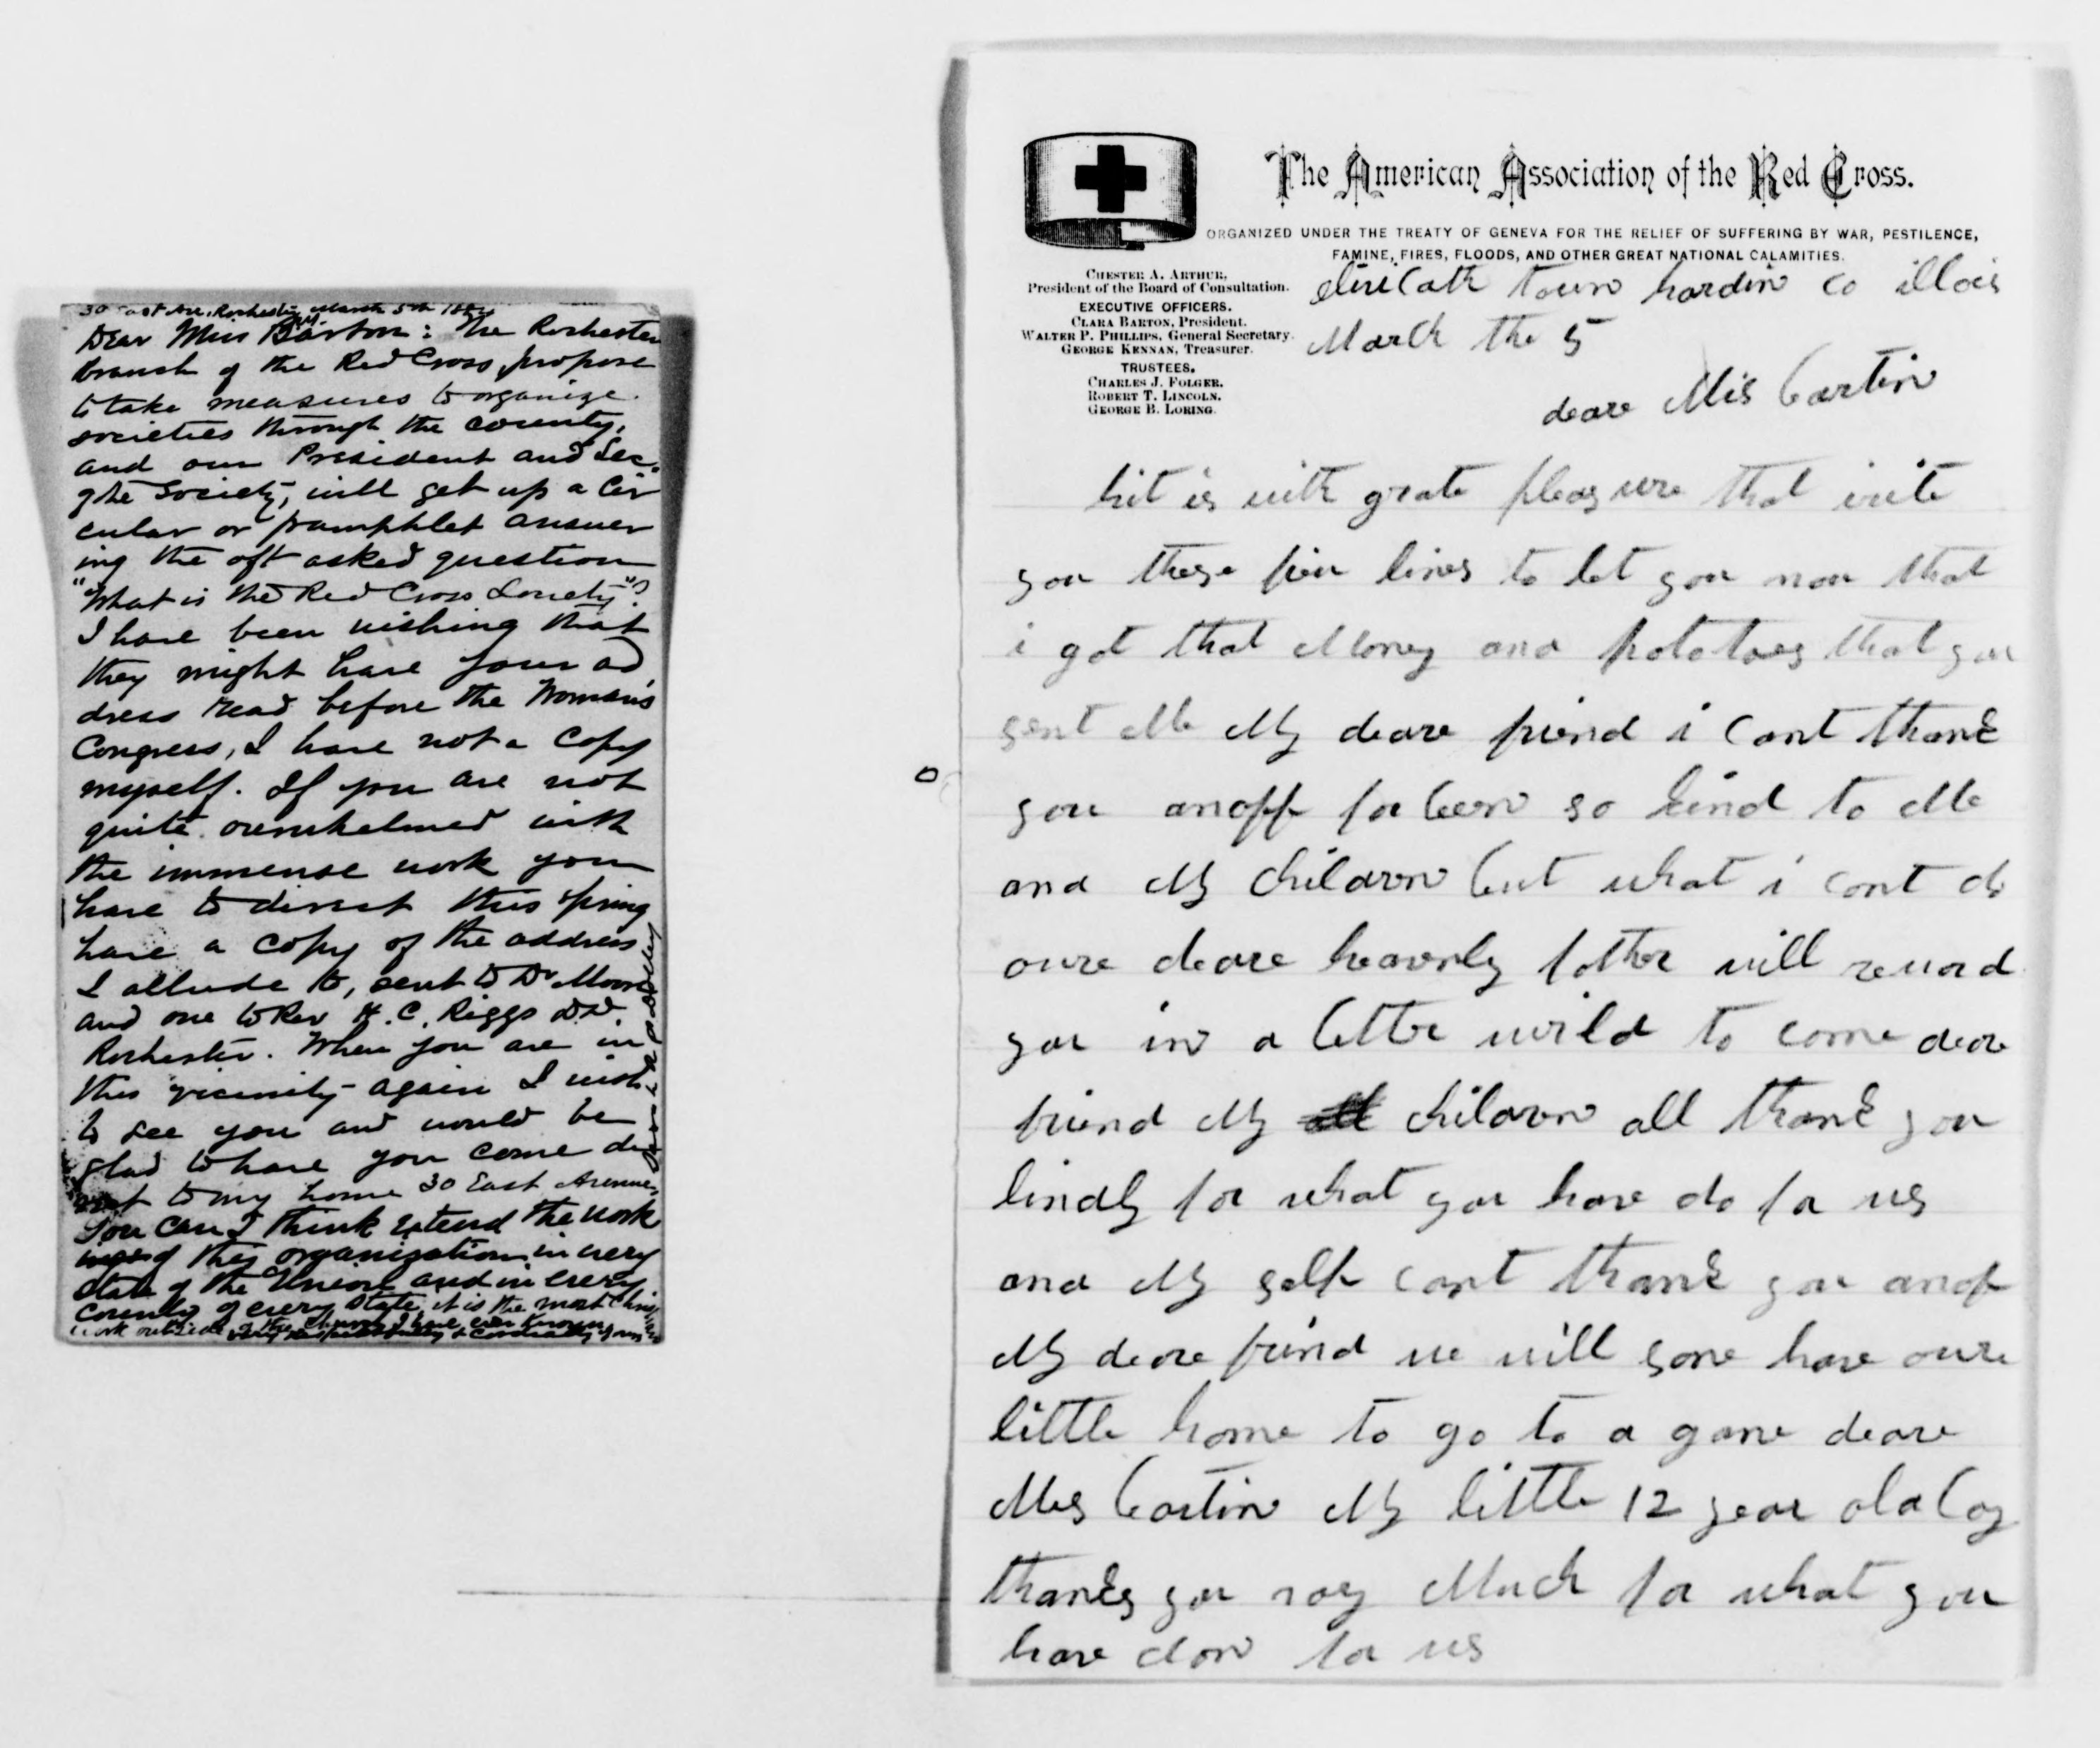 30 East Ave. Rochester March 5th
Dear Miss Barton: The Rochester
branch of the Red Cross propose
to take measures to organize
societies through the county,
and our President and Sec.
of the Society, will get up a Cir
cular or pamphlet answer
ing the oft asked question
"What is the Red Cross Society"?
I have been wishing that
they might have your ad
dress read before the Woman's
Congress, I have not a copy
myself. If you are not
quite overwhelmed with
the immense work you
have to direct this spring
have a copy of the address
I allude to, sent to Dr Moore
and one to Rev H. C. Riggs D.D.
Rochester. When you are in
this vicinity again I wish
to see you and would be
glad to have you come di
rect to my home 30 East Avenue,
You can I think extend the work
ings of this organization in every
state of the Union and in every
County of every state, it is the most Chris
work outside of the church I have ever known
very respectfully & cordially yours
The American Association of the Red Cross.
ORGANIZED UNDER THE TREATY OF GENEVA FOR THE RELIEF OF SUFFERING BY WAR, PESTILENCE,
FAMINE, FIRES, FLOODS, AND OTHER GREAT NATIONAL CALAMITIES.
CHESTER A. ARTHUR,
President of the Board of Consultation.
EXECUTIVE OFFICERS.
CLARA BARTON, President.
WALTER P. PHILLIPS, General Secretary.
GEORGE KENNAN, Treasurer.
TRUSTEES.
CHARLES J. FOLGER.
ROBERT T. LINCOLN.
GEORGE B. LORING.
town hardin co illois
March the 5
deare Mis bartin
hit is with grate pleasure that i rite
you these few lines to let you now that
i got that Money and potatoes that you
sent Me My deare friend i cant thank
you anoff for been so kind to Me
and My children but what i cant do
oure deare heavenly father will reward
you in a better world to come deare
friend My children all thank you
kindly for what you have do for us
and My self cant thank you anof
My deare frind we will sone have oure
little home to go to a gane deare
Mis bartin My little 12 year old boy
thanks you vary Much for what you
have don for us